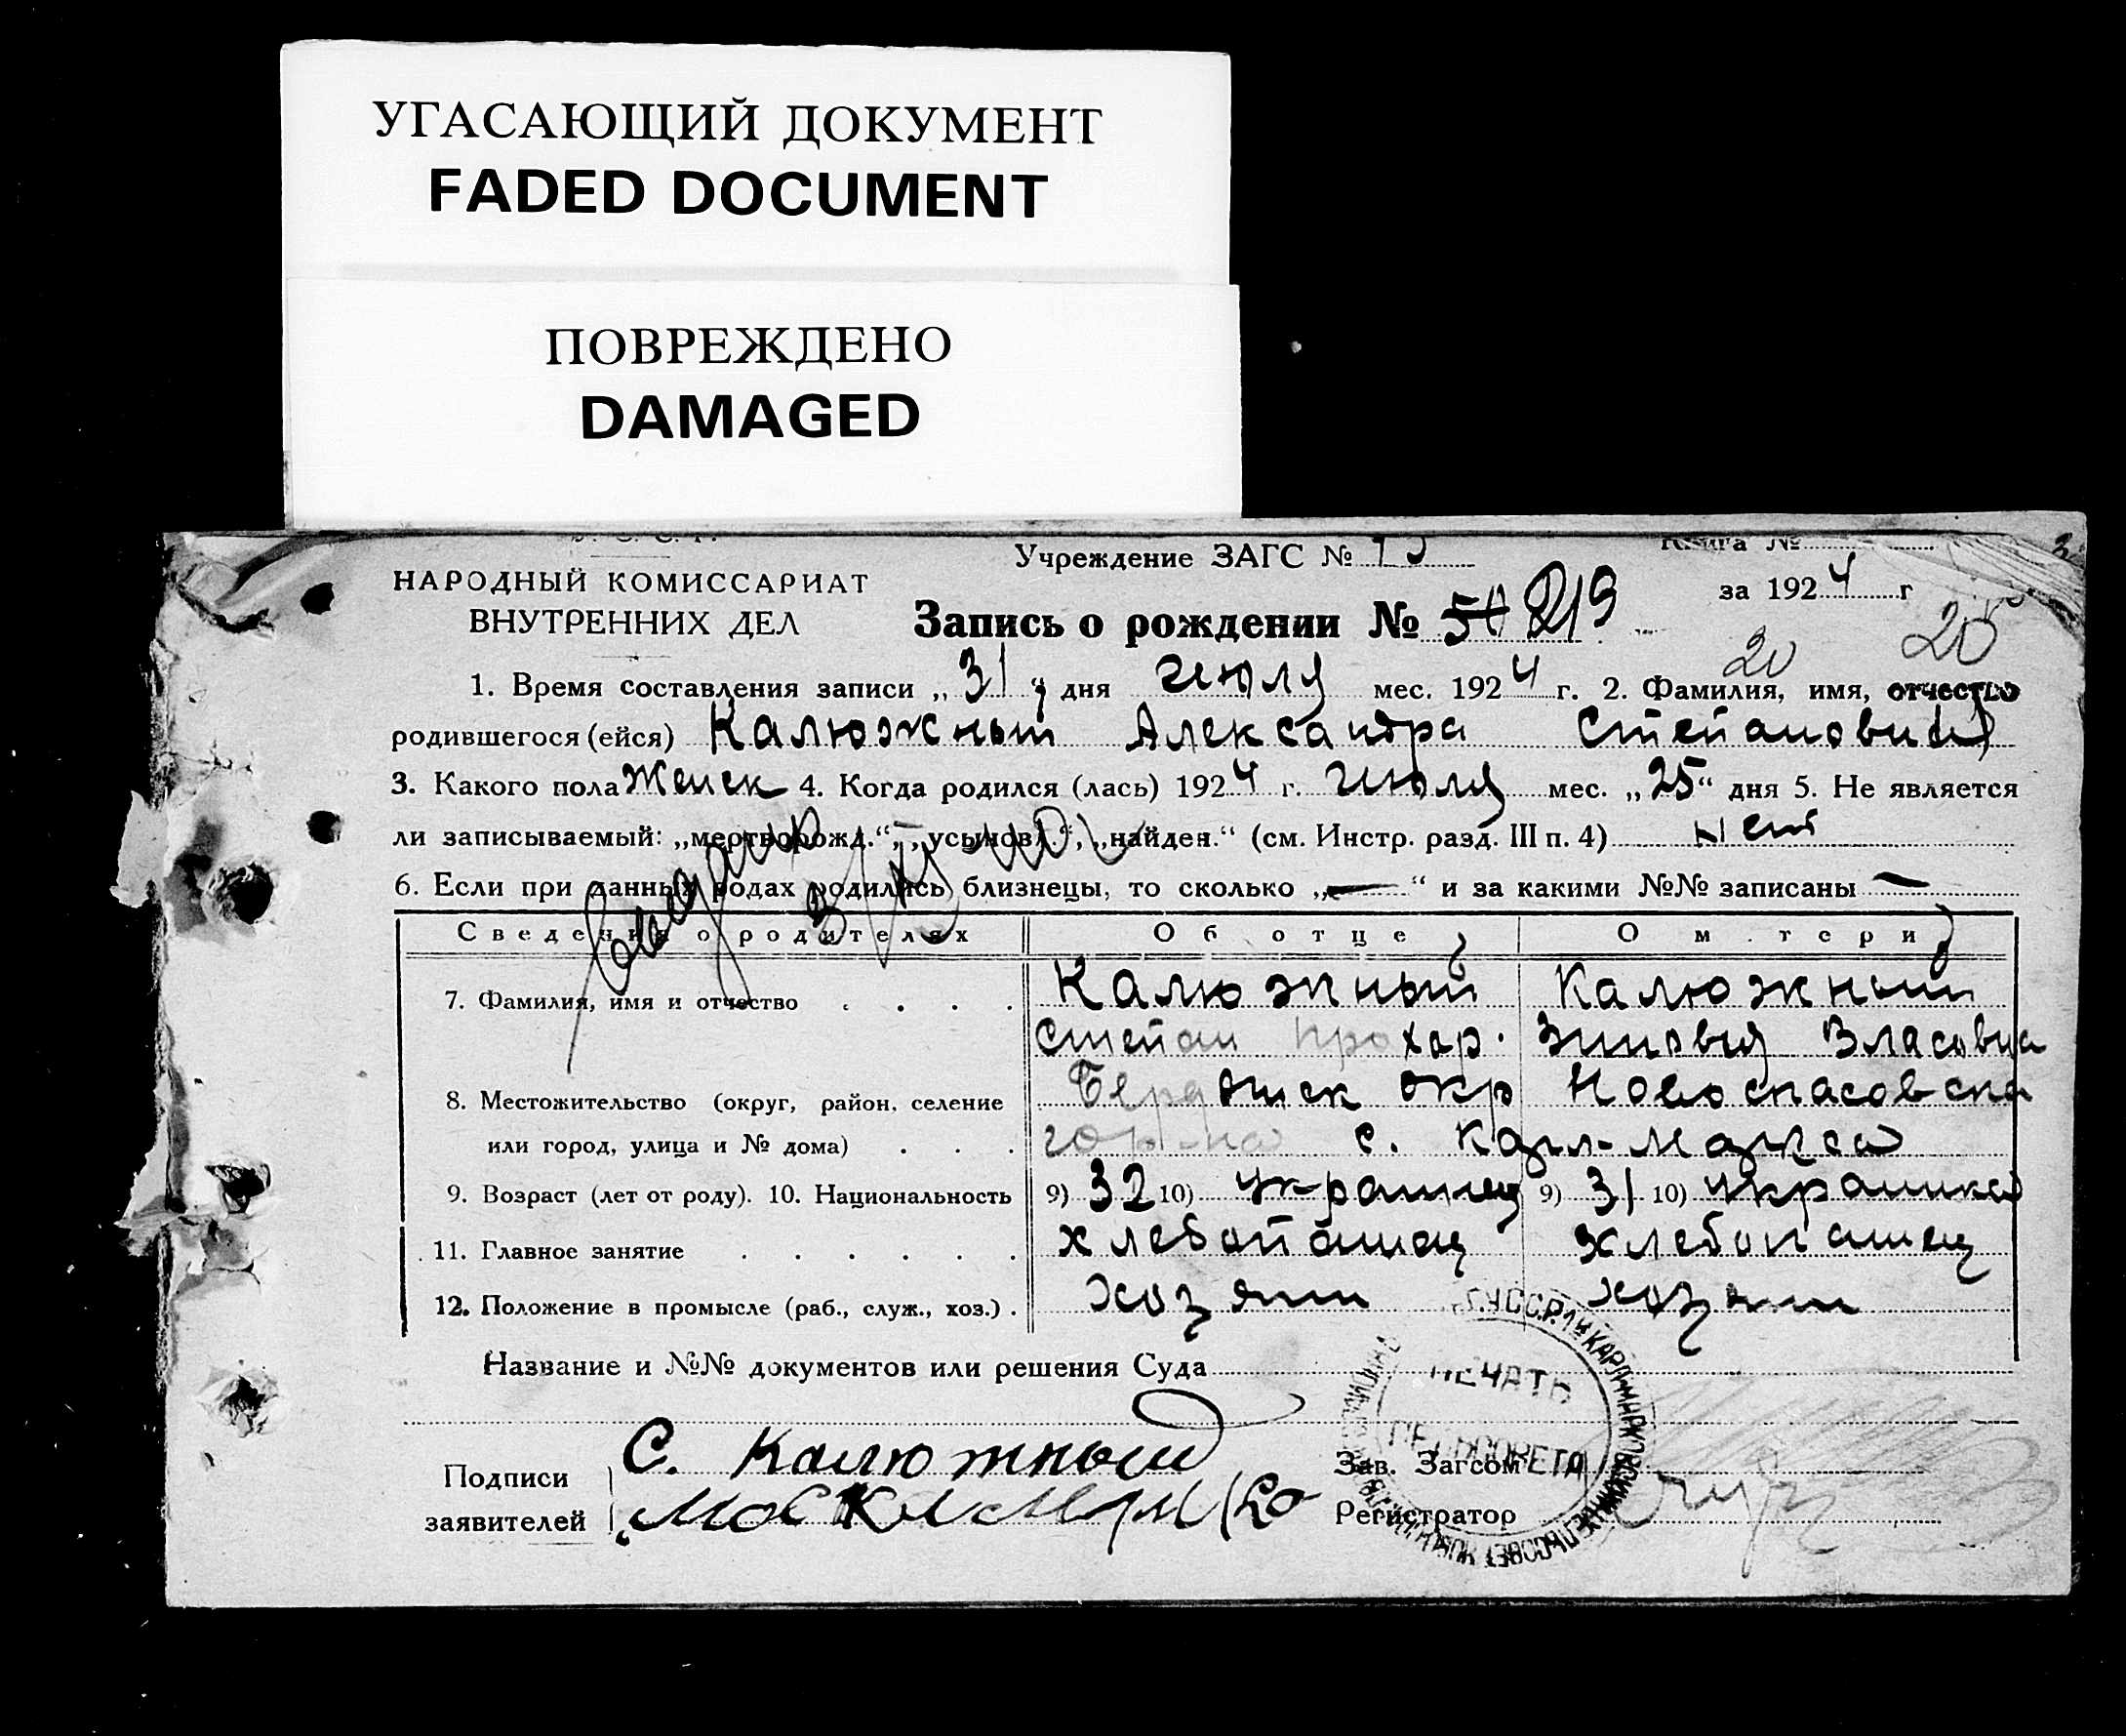 УГАСАЮЩИЙ ДОКУМЕНТ
FADED DOCUMENT
ПОВРЕЖДЕНО
DAMAGED
Учреждение ЗАГС №
Книга №
НАРОДНЫЙ КОМИССАРИАТ
ВНУТРЕННИХ ДЕЛ
за 1924 г
Запись о рождении № 219
20 20
1. Время составления записи „31“ дня июля мес. 1924 г. 2. Фамилия, имя, отчество
родившегося (ейся) Калюжный Александра Степанович
3. Какого пола Женск 4. Когда родился (лась) 1924 г. июля мес. „25“ дня 5. Не является
ли записываемый: „мертворожд.“, „усынов.“, „найден.“ (см. Инстр. разд. III п. 4) нет
6. Если при данных родах родились близнецы, то сколько „—“ и за какими №№ записаны —
Сведения о родителях Об отце О матери
7. Фамилия, имя и отчество . . . . Калюжный Калюжный
Степан Прохор. Зиновья Власовна
8. Местожительство (округ, район, селение Бердянск окр Новоспасовска
или город, улица и № дома) . . . с. Карл-Маркса
9. Возраст (лет от роду). 10. Национальность 9) 32 10) украинец 9) 31 10) украинка
11. Главное занятие . . . . . . хлебопашец хлебопашец
12. Положение в промысле (раб., служ., хоз.) . хозяин хозяин
Название и №№ документов или решения Суда
ПЕЧАТЬ
Подписи
заявителей
С. Калюжный
Зав. Загсом
Регистратор